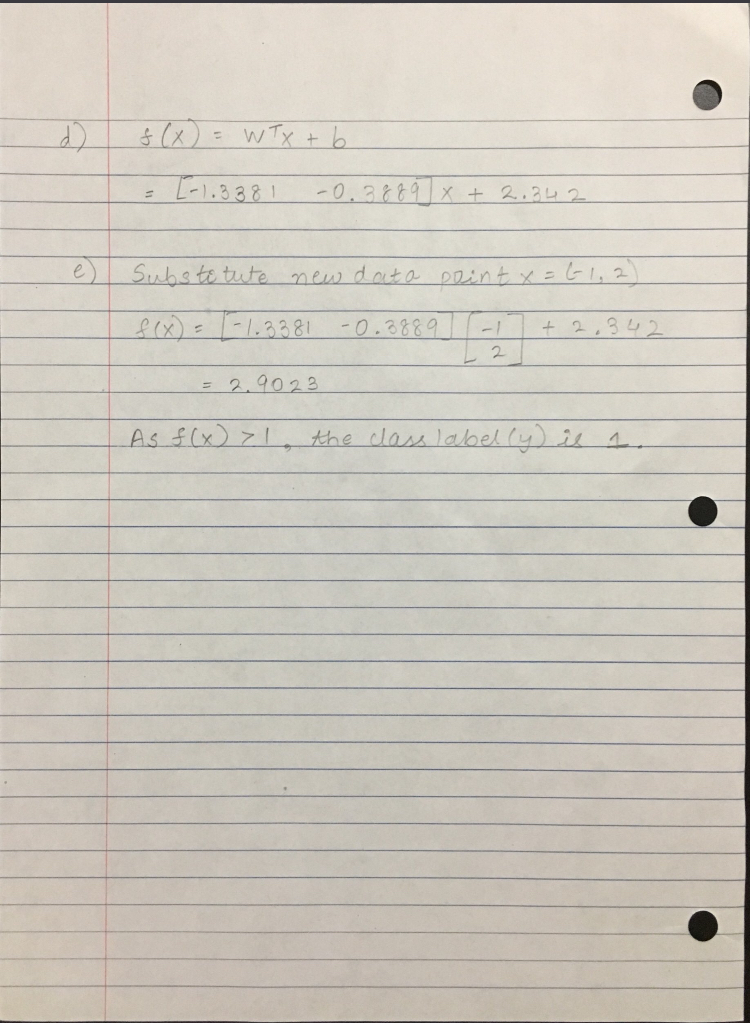 d) f(x) = WᵀX + b
= [-1.3381 -0.3889] x + 2.342
e) Substitute new data point x = (-1, 2)
f(x) = [-1.3381 -0.3889] [-1 2] + 2.342
= 2.9023
As f(x) > 1, the class label (y) is 1.